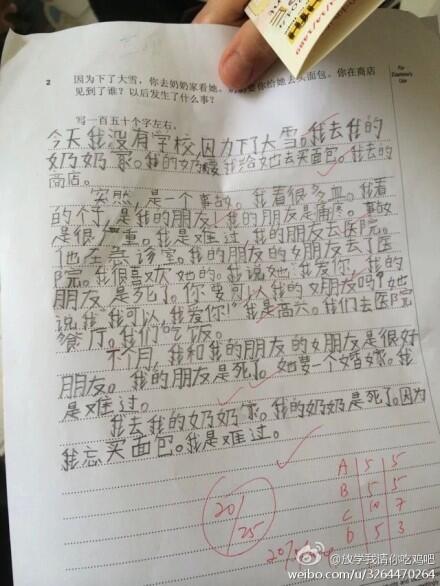 2
因为下了大雪，你去奶奶家看她。奶奶要你给她去买面包。你在商店
见到了谁？以后发生了什么事？
For
Examiner's
Use
写一百五十个字左右。
今天我没有学校，因为下了大雪。我去我的
奶奶家。我的奶奶要我给她去买面包。我去的
商店。
突然，是一个事故。我看很多血。我看
的个车，是我的朋友，我的朋友是痛疼。事故
是很严重。我是难过。我的朋友去医院。
他在急诊室。我的朋友的女朋友去了医
院。我很喜欢她的。我说她“我爱你，我的
朋友是死了。你要可以我的女朋友吗？”她
说“我可以，我爱你！”我是高兴。我们去医院
餐厅。我们吃饭。
下个月，我和我的朋友的女朋友是很好
朋友。我的朋友是死了。她要一个婚嫁。我
是难过。
我去我的奶奶家。我的奶奶是死了。因为
我忘买面包。我是难过。
A 5 5
B 5 5
C 10 7
D 5 3
20
25
@放学我请你吃鸡吧
weibo.com/u/3264470264